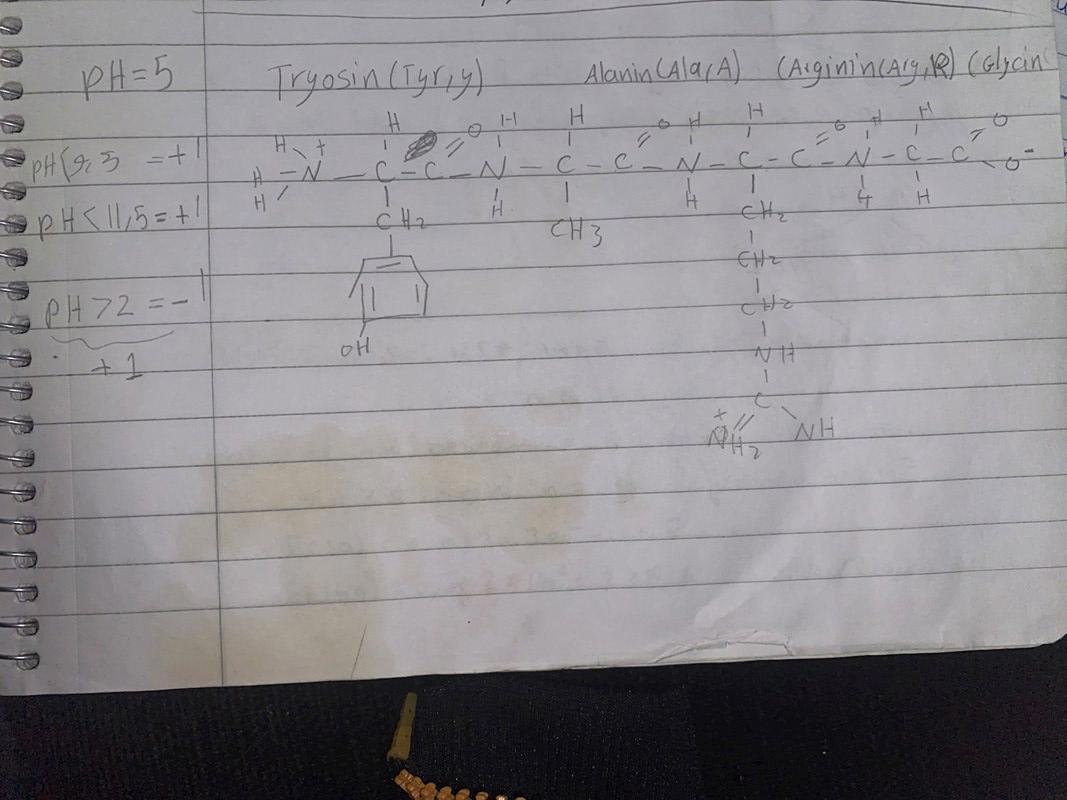 pH=5 Tryosin (Tyr, y) Alanin (Ala, A) (Arginin (Arg, R) (Glycin(
H H H H H H H
H + O O O O
pH(9,5 =+1 H - N - C - C - N - C - C - N - C - C - N - C - C - O-
H
H H 4 H
pH<11,5=+1 CH2 CH3 CH2
CH2
pH>2=-1 CH2
OH NH
+1
C
+
NH2 NH